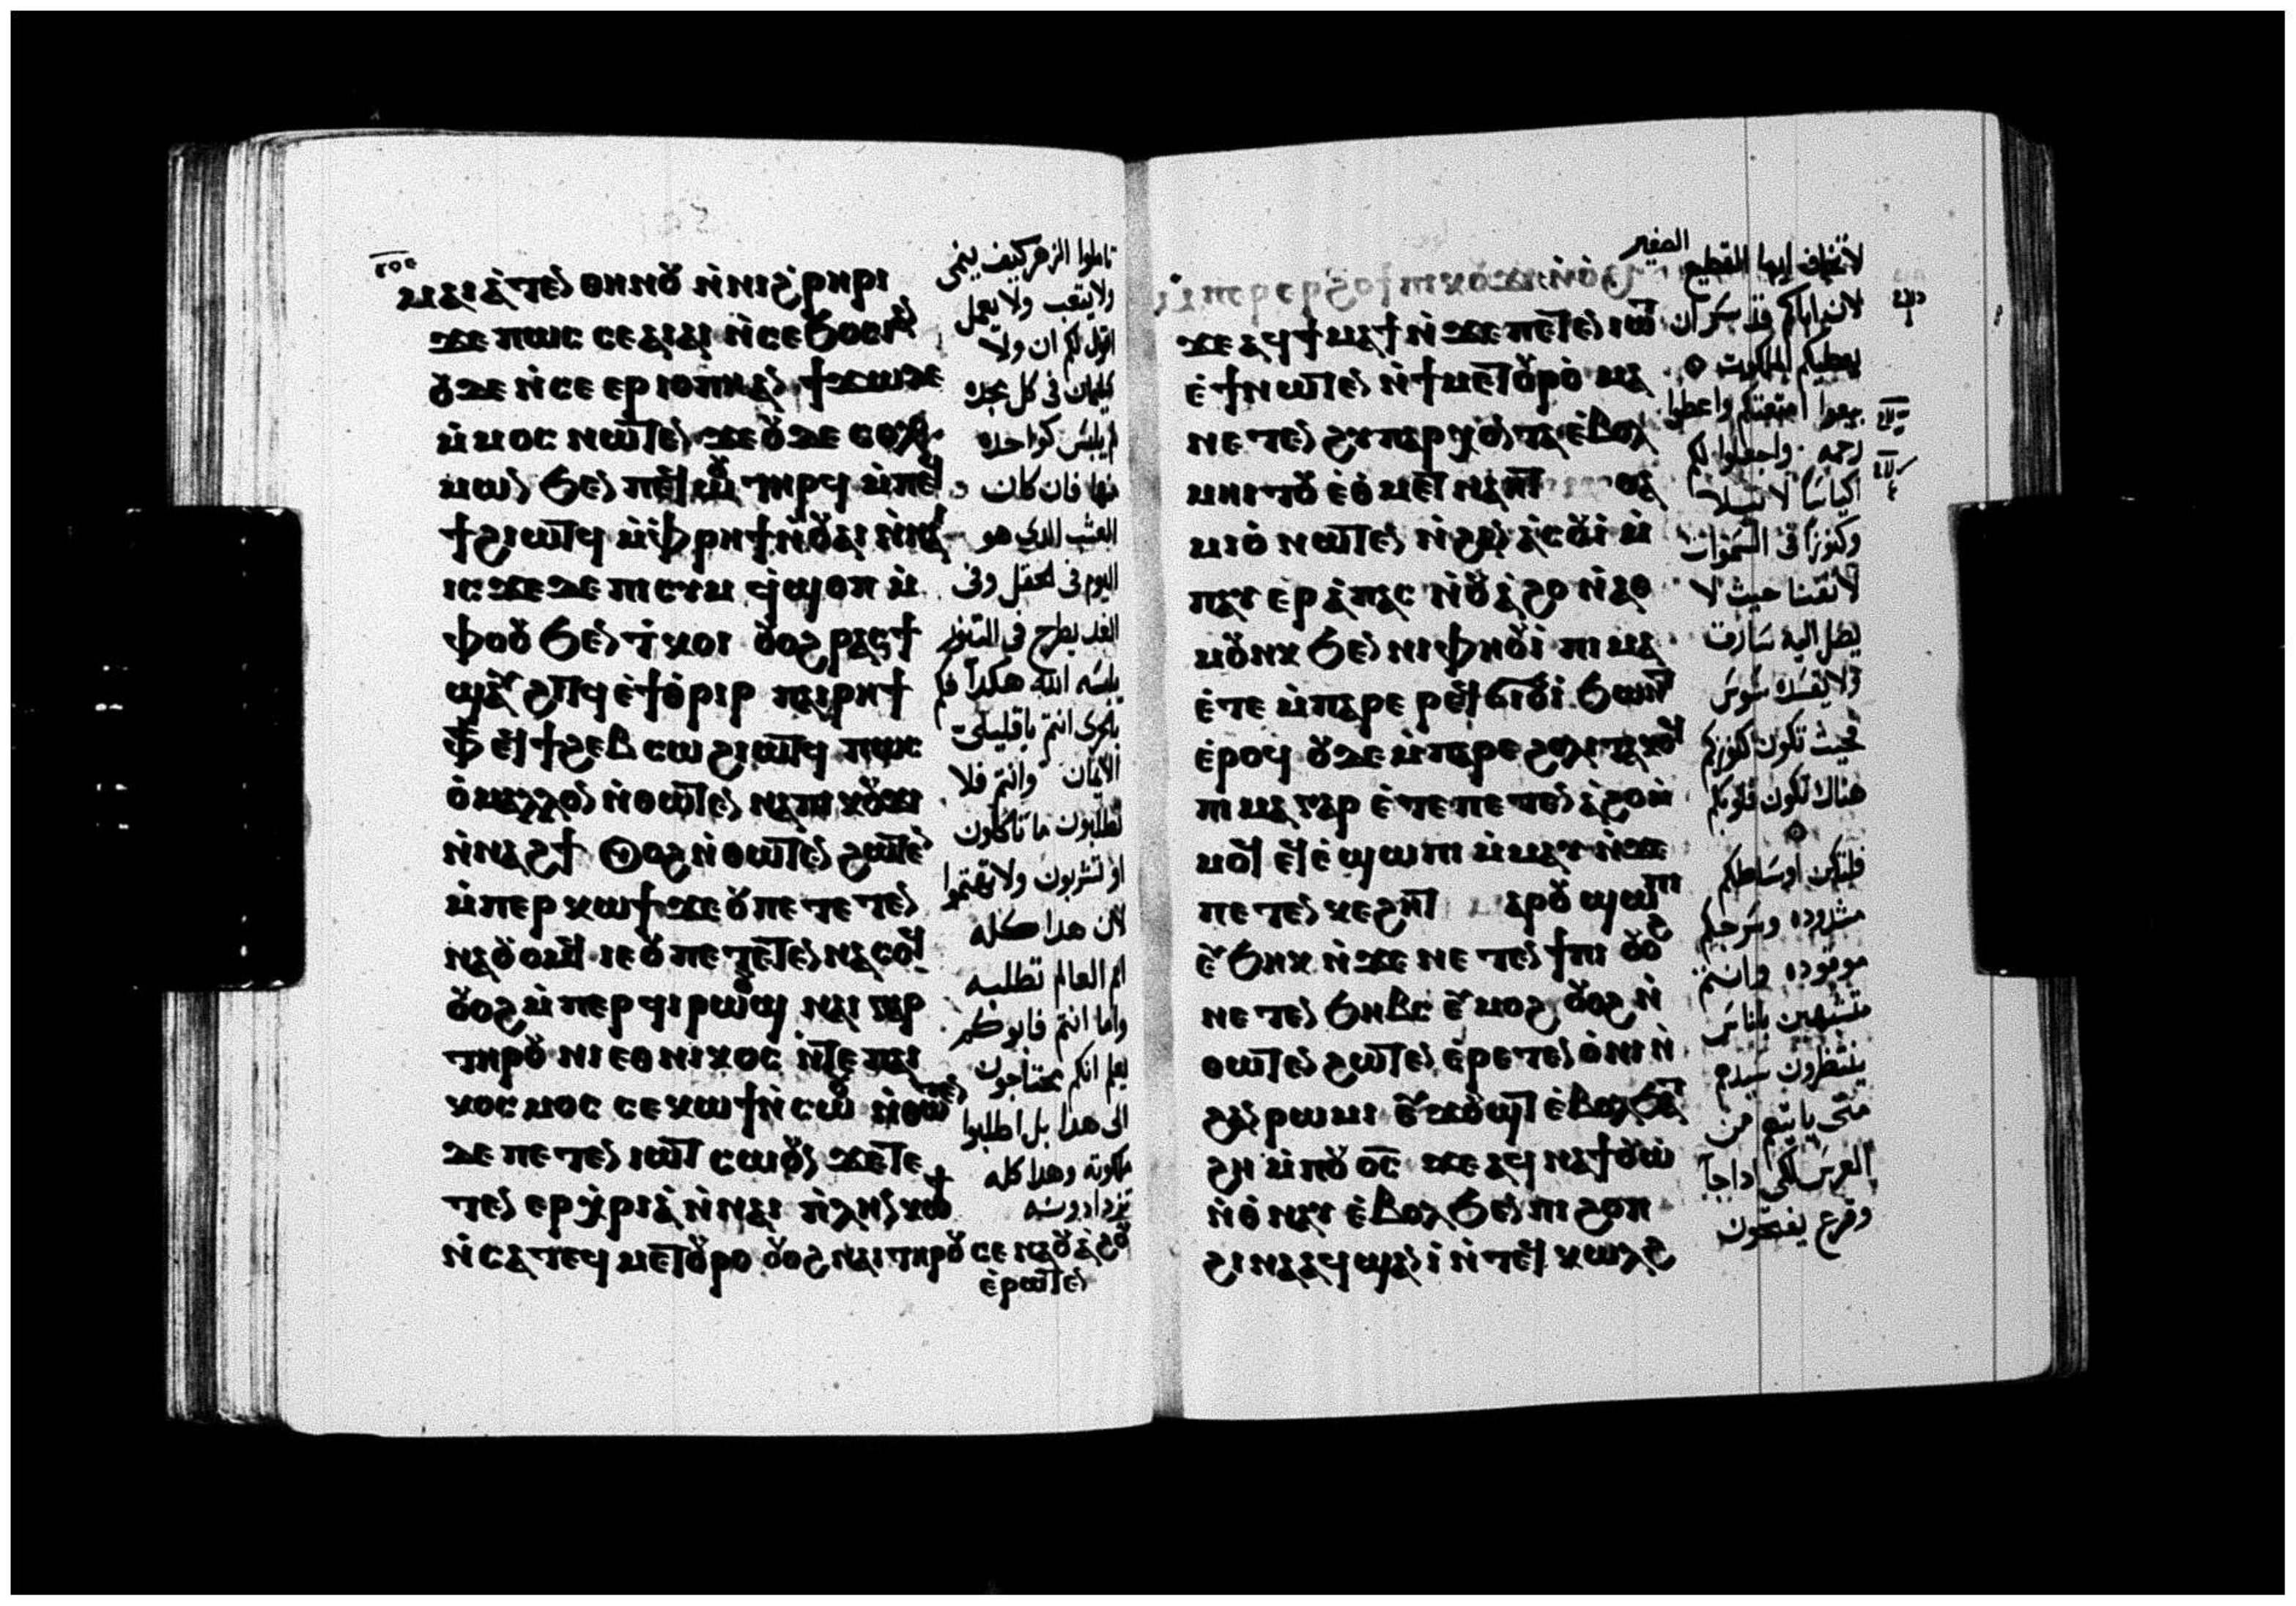 ⲙⲁⲓⲁ̀ⲧⲉⲛ ⲑⲏⲛⲟⲩ ⲛ̀ⲛⲓϩ̀ⲣⲏⲣⲓ
ϫⲉ ⲡⲱⲥ ⲥⲉⲁⲓⲁⲓ ⲛ̀ⲥⲉϧⲟⲥⲓ ⲁⲛ
ⲟⲩⲇⲉ ⲛ̀ⲥⲉ ⲉⲣⲓⲟⲡⲏ ⲁⲛ ϯϫⲱ ⲇⲉ
ⲙ̀ⲙⲟⲥ ⲛⲱⲧⲉⲛ ϫⲉ ⲟⲩⲇⲉ ⲥⲟⲗ
ⲙⲱⲛ ϧⲉⲛ ⲡⲉϥⲱⲟⲩ ⲧⲏⲣϥ ⲙ̀ⲡⲉϥ
ϯϩⲓⲱⲧϥ ⲙ̀ⲫⲣⲏϯ ⲛ̀ⲟⲩⲁⲓ ⲛ̀ⲛⲁ
ⲓⲥϫⲉ ⲇⲉ ⲡⲓⲥⲓⲙ ϥ̀ϣⲟⲡ ⲙ̀
ⲫⲟⲟⲩ ϧⲉⲛ ⲧ̀ⲕⲟⲓ ⲟⲩⲟϩ ⲣⲁⲥϯ
ϣⲁⲩϩⲓⲧϥ ⲉ̀ϯⲑ̀ⲣⲓⲣ ⲡⲁⲓⲣⲏϯ
ⲫϯ ϥϯϩⲉⲃⲥⲱ ϩⲓⲱⲧϥ ⲡⲱⲥ
ⲟ̀ ⲙⲁⲗⲗⲟⲛ ⲛ̀ⲑⲱⲧⲉⲛ ⲛⲁⲡⲓⲕⲟⲩϫⲓ
ⲛ̀ⲛⲁϩϯ ⲟⲩⲟϩ ⲛ̀ⲑⲱⲧⲉⲛ ϩⲱⲧⲉⲛ
ⲙ̀ⲡⲉⲣⲕⲱϯ ϫⲉ ⲟⲩ ⲡⲉⲧⲉⲧⲉⲛ
ⲛⲁⲟⲩⲟⲙϥ ⲓⲉ ⲟⲩ ⲡⲉⲧⲉⲧⲉⲛⲛⲁⲥⲟϥ
ⲟⲩⲟϩ ⲙ̀ⲡⲉⲣϥⲓⲣⲱⲟⲩϣ ⲛⲁⲓ ⲅⲁⲣ
ⲧⲏⲣⲟⲩ ⲛⲓⲉⲑⲛⲓⲕⲟⲥ ⲛ̀ⲧⲉ ⲡⲁⲓ
ⲕⲟⲥⲙⲟⲥ ⲥⲉⲕⲱϯ ⲛ̀ⲥⲱⲟⲩ ⲛ̀ⲑⲱⲧⲉⲛ
ⲇⲉ ⲡⲉⲧⲉⲛⲓⲱⲧ ⲥⲱⲟⲩⲛ ϫⲉ ⲧⲉ
ⲧⲉⲛ ⲉⲣⲭ̀ⲣⲓⲁ̀ ⲛ̀ⲛⲁⲓ ⲡ̀ⲗⲏⲛ ⲕⲱϯ
ⲛ̀ⲥⲁ ⲧⲉϥⲙⲉⲧⲟⲩⲣⲟ ⲟⲩⲟϩ ⲛⲁⲓ ⲧⲏⲣⲟⲩ ⲥⲉⲛⲁⲟⲩⲁ̀ϩⲟⲩ
ⲉ̀ⲣⲱⲧⲉⲛ
تاملوا الزهر كيف ينمى
ولا يتعب ولا يعمل
اقول لكم ان ولا
سليمان فى كل مجده
لم يلبس كواحده
منها فان كان
العشب الذي هو
اليوم فى الحقل وفى
الغد يطرح فى التنور
يلبسه الله هكذا فكم
بالحرى انتم يا قليلى
الايمان وانتم فلا
تطلبون ما تاكلون
او تشربون ولا تهتموا
لان هذا كله
امم العالم تطلبه
واما انتم فابوكم
يعلم انكم محتاجون
الى هذا بل اطلبوا
ملكوته وهذا كله
تزدادونه
ϫⲉ ⲁϥϯⲙⲁϯ ⲛ̀ϫⲉ ⲡⲉⲧⲉⲛⲓⲱⲧ
ⲉ̀ϯ ⲛⲱⲧⲉⲛ ⲛ̀ϯⲙⲉⲧⲟⲩⲣⲟ ⲙⲁ
ⲛⲉⲧⲉⲛ ϩⲩⲡⲁⲣⲭⲟⲛⲧⲁ ⲉ̀ⲃⲟⲗ
ⲙⲏⲓⲧⲟⲩ ⲉ̀ⲟ̀ⲙⲉⲧⲛⲁⲏⲧ ⲑⲁ
ⲙⲓⲟ̀ ⲛⲱⲧⲉⲛ ⲛ̀ϩⲁⲛ ⲁ̀ⲥⲟⲩⲓ̀ ⲙ̀
ⲡⲁⲩⲉⲣⲁ̀ⲡⲁⲥ ⲛ̀ⲟⲩⲁ̀ϩⲟ ⲛ̀ⲁⲑ
ⲙⲟⲩⲛⲕ ϧⲉⲛ ⲛⲓⲫⲏⲟⲩⲓ̀ ⲡⲓⲙⲁ
ⲉ̀ⲧⲉ ⲙ̀ⲡⲁⲣⲉ ⲣⲉϥϭⲓⲟⲩⲓ̀ ϧⲱⲛⲧ
ⲉ̀ⲣⲟϥ ⲟⲩⲇⲉ ⲙ̀ⲡⲁⲣⲉ ϩⲟⲗⲓ ⲧⲁⲕⲟϥ
ⲡⲓⲙⲁ ⲅⲁⲣ ⲉ̀ⲧⲉ ⲡⲉⲧⲉⲛ ⲁ̀ϩⲟ ⲙ̀
ⲙⲟϥ ⲉϥⲉ̀ϣⲱⲡⲓ ⲙ̀ⲙⲁⲩ ⲛ̀ϫⲉ
ⲡⲉⲧⲉⲛⲕⲉϩⲏⲧ ⲙⲁⲣⲟⲩϣⲱⲡⲓ
ⲉⲩϧⲏⲕ ⲛ̀ϫⲉ ⲛⲉⲧⲉⲛϯⲡⲓ ⲟⲩⲟϩ
ⲛⲉⲧⲉⲛϧⲏⲃⲥ ⲉⲩⲙⲟϩ ⲟⲩⲟϩ ⲛ̀
ⲑⲱⲧⲉⲛ ϩⲱⲧⲉⲛ ⲉ̀ⲣⲉⲧⲉⲛ ⲟ̀ⲛⲓ ⲛ̀
ϩⲁⲛⲣⲱⲙⲓ ⲉⲩϫⲟⲩϣⲧ ⲉ̀ⲃⲟⲗ ϧⲁⲧ
ϩⲏ ⲙ̀ⲡⲟⲩⲟ̅ⲥ̅ ϫⲉ ⲁϥⲛⲁϯⲟⲩⲱ
ⲛ̀ⲑⲛⲁⲩ ⲉ̀ⲃⲟⲗ ϧⲉⲛ ⲡⲓϩⲟⲡ
ϩⲓⲛⲁ ⲁϥϣⲁⲛⲓ̀ ⲛ̀ⲧⲉϥⲕⲱⲗϩ
الصغير
لا تخاف ايها القطيع
لان اباكم قد سر ان
يعطيكم الملكوت
بيعوا امتعتكم واعطوا
رحمه واجعلوا لكم
اكياسا لا تبلا
وكنوزا فى السموات
لا تفنا حيث لا
يصل اليه سارق
ولا يفسده سوس
فحيث تكون كنوزكم
هناك تكون قلوبكم
فلتكن اوساطكم
مشدوده وسرجكم
موقوده وانتم
متشبهين بالناس
ينتظرون سيدهم
متى ياتيهم من
العرس لكى اذا جا
وقرع يفتحون